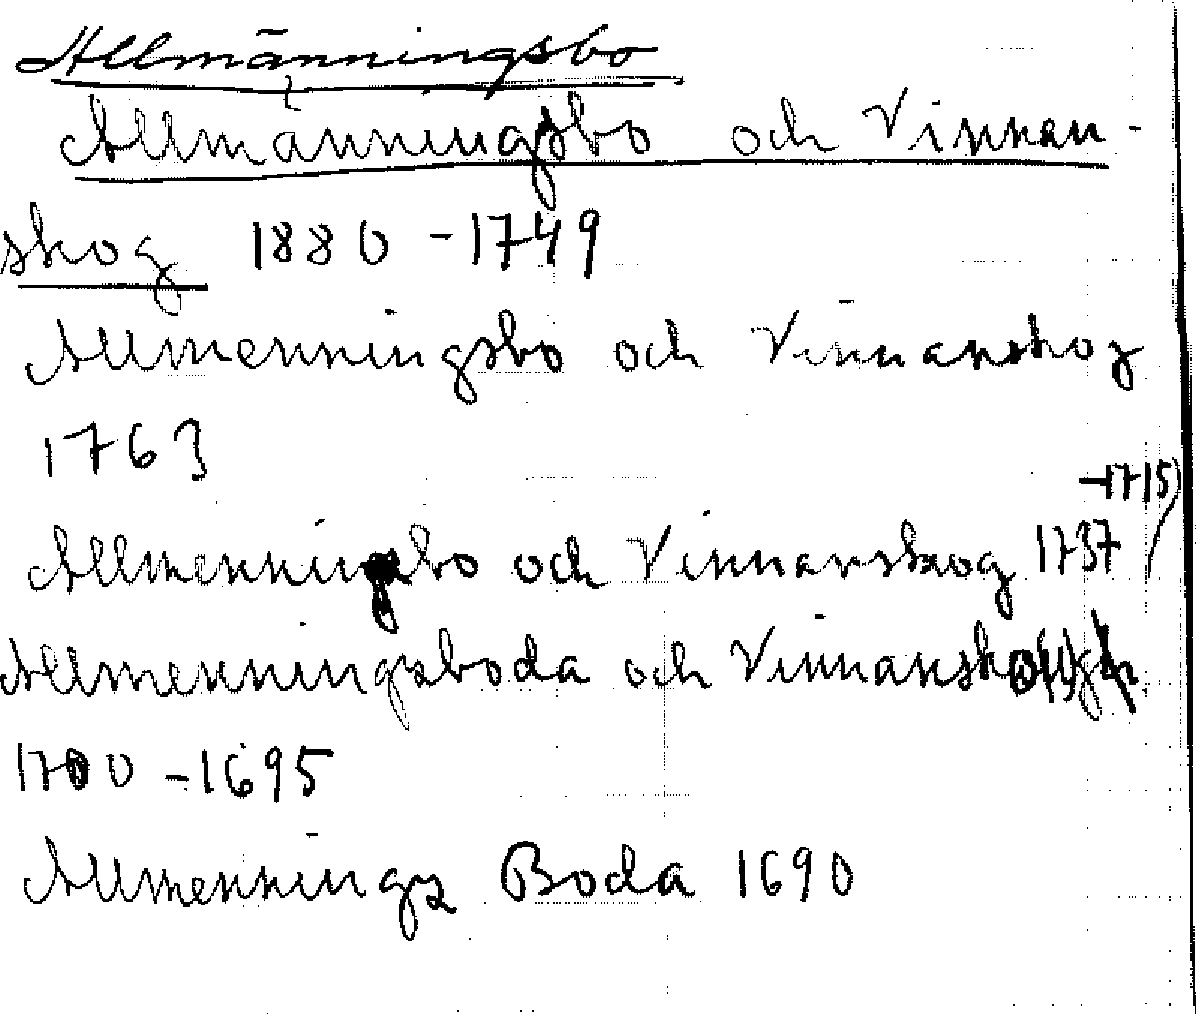 Allmänningsbo
Allmänningsbo och Vinnan-
skog 1880 - 1749
Allmenningsbo och Vinnanskog
1763
-1715)
Allmenningsbo och Vinnanskog 1737
Allmenningsboda och
1700 - 1695
Allmennings Boda 1690